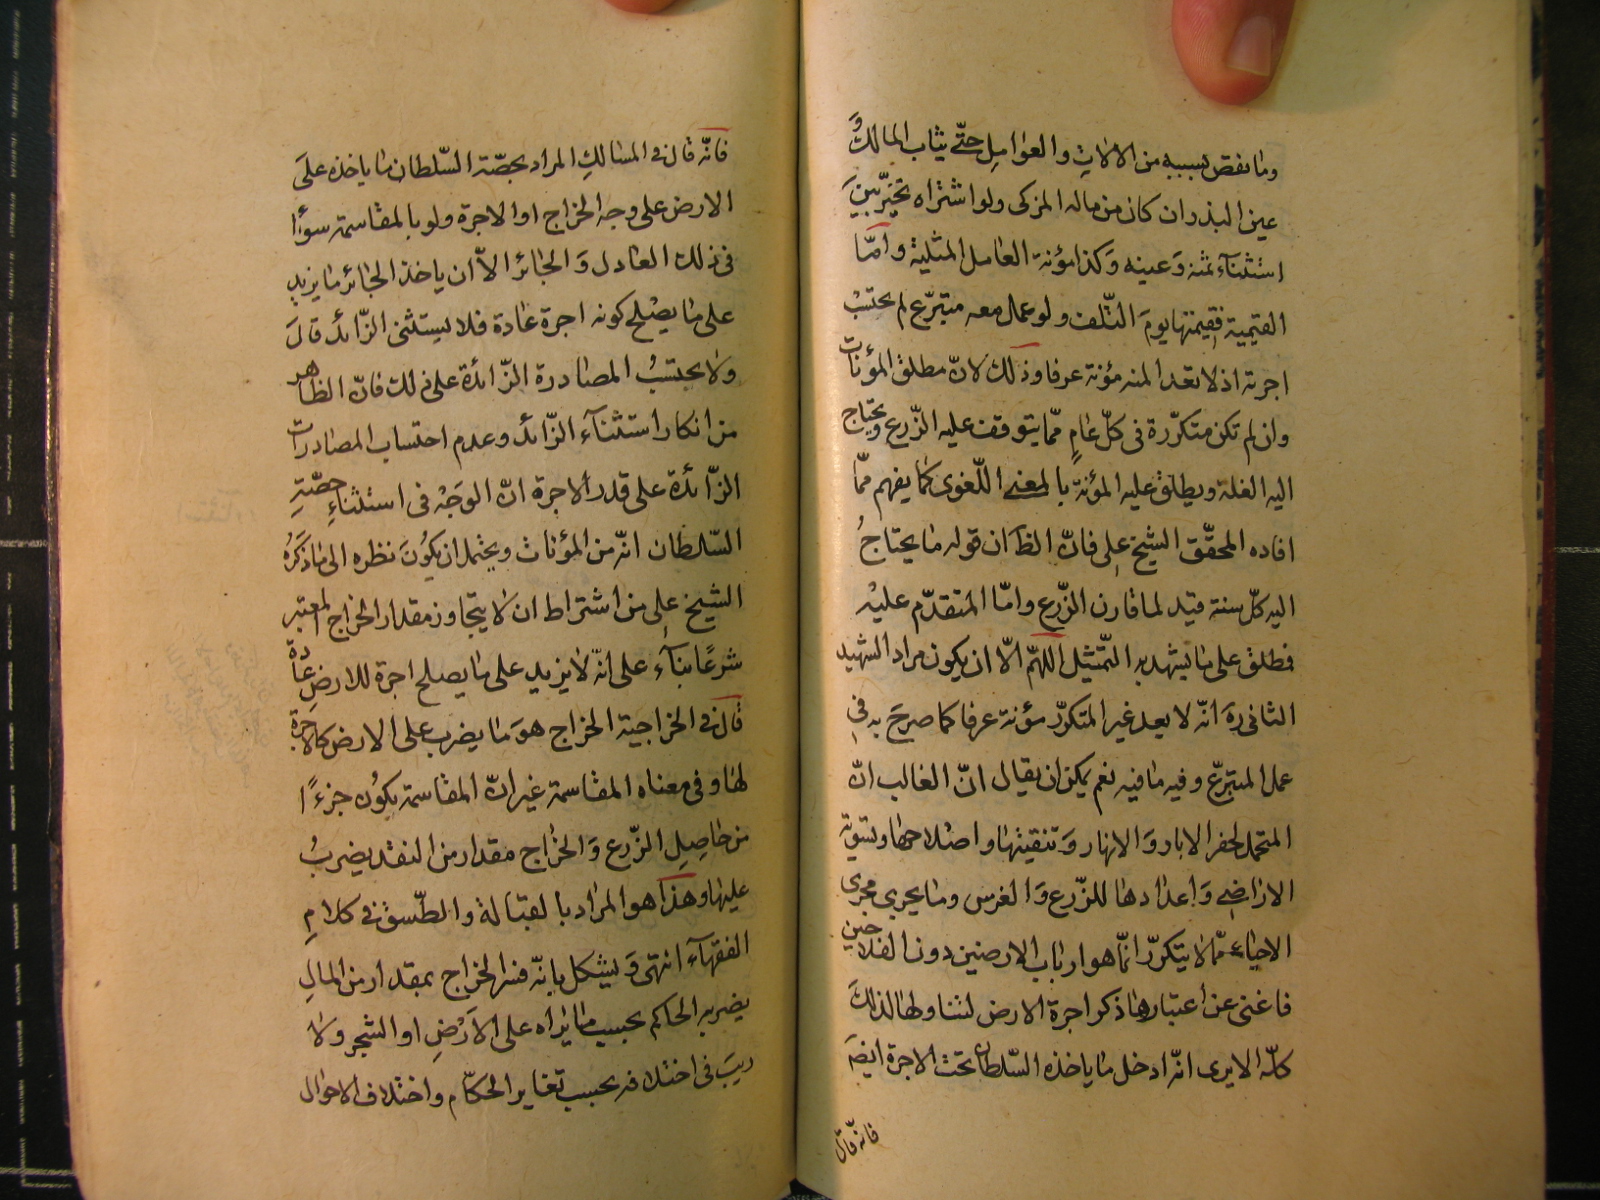 وما نقص بسببه من الالات والعوامل حتّى ثياب المالك و
عين البذر ان كان من ماله المزكى ولو اشتراه تخيّر بين
استثنآء ثمنه وعينه وكذا مؤنة العامل المثلية وامّا
القيمية فقيمتها يوم التلف ولو عمل معه متبرّع لم يحتسب
اجرته اذ لا تعد المنه مؤنة عرفا وذلك لانّ مطلق المؤنات
وان لم تكن متكرّرة فى كلّ عام ممّا يتوقف عليه الزّرع ويحتاج
اليه الغلة ويطلق عليه المؤنة بالمعنى اللّغوى كما يفهم ممّا
افاده المحقّق الشيخ على فانّ الظ ان قوله ما يحتاج
اليه كلّ سنة قيد لما قارن الزّرع وامّا المتقدّم عليه
فطلق على ما يشهد به التمّثيل اللّهمّ الاّ ان يكون مراد الشهيد
الثانى ره انّه لا يعد غير المتكرّر مؤنة عرفا كما صرح به فى
عمل المتبرّع وفيه ما فيه نعم يمكن ان يقال انّ الغالب انّ
المتحمل لحفر الابار والانهار وتنقيتها واصلاحها وتسوية
الاراضى واعدادها للزّرع والغرس وما يجرى مجرى
الاحياء ممّا لا يتكرّر انّما هو ارباب الارضين دون الفلاحين
فاغنى عن اعتبارها ذكر اجرة الارض لتناولها لذلك
كلّه الا يرى انّه ادخل ما ياخذه السّلطان تحت الاجرة ايضَ
فانّه قال
فانّه قال فى المسالك المراد بحصّة السّلطان ما ياخذه على
الارض على وجه الخراج او الاجرة ولو بالمقاسمة سوآء
فى ذلك العادل والجائر الاّ ان ياخذ الجائر ما يزيد
على ما يصلح كونه اجرة عادة فلا يستثنى الزّائد قال
ولا يحتسب المصادرة الزّائدة على ذلك فانّ الظاهر
من انكار استثنآء الزّائد وعدم احتساب المصادرات
الزّائدة على قدر الاجرة انّ الوجه فى استثناء حصّة
السّلطان انّه من المؤنات ويحتمل ان يكون نظره الى ما ذكره
الشيخ على من اشتراط ان لا يتجاوز مقدار الخراج المعتبر
شرعًا بنآء على انّه لا يزيد على ما يصلح اجرة للارض عادة
قال فى الخراجية الخراج هو ما يضرب على الارض كالاجرة
لها وفى معناه المقاسمة غير انّ المقاسمة يكون جزءًا
من حاصل الزّرع والخراج مقدار من النقد يضرب
عليها وهذا هو المراد بالقبالة والطّسق فى كلام
الفقهآء انتهى ويشكل بانّه فسر الخراج بمقدار من المال
يضربه الحاكم بحسب ما يراه على الارض او الشجر ولا
ريب فى اختلافه بحسب تغاير الحكّام واختلاف الاحوال